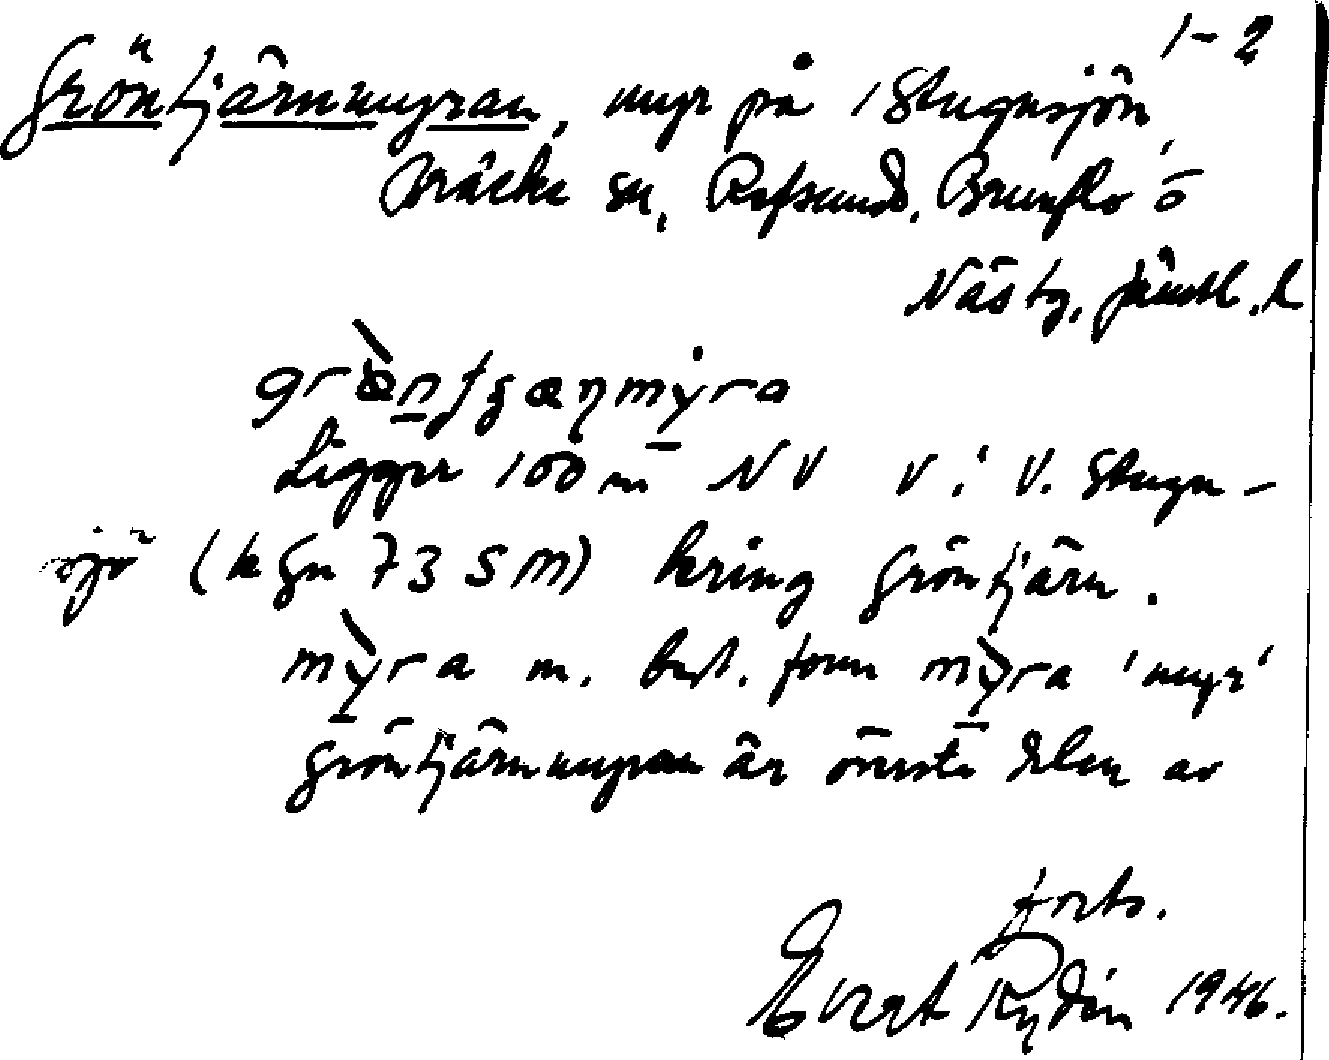 1-2
Gröntjärnmyran, myr på 1 Stugusjön,
Bräcke sn, Refsund, Brunflo o
Näs tg, Jämtl. l
Ligger 100 m NV v. i V. Stugu-
sjö (kgn 73 SM) kring Gröntjärn.
myra m. best. form myra 'myr'
Gröntjärnmyran är översta delen av
forts.
Evert Rydin 1946.